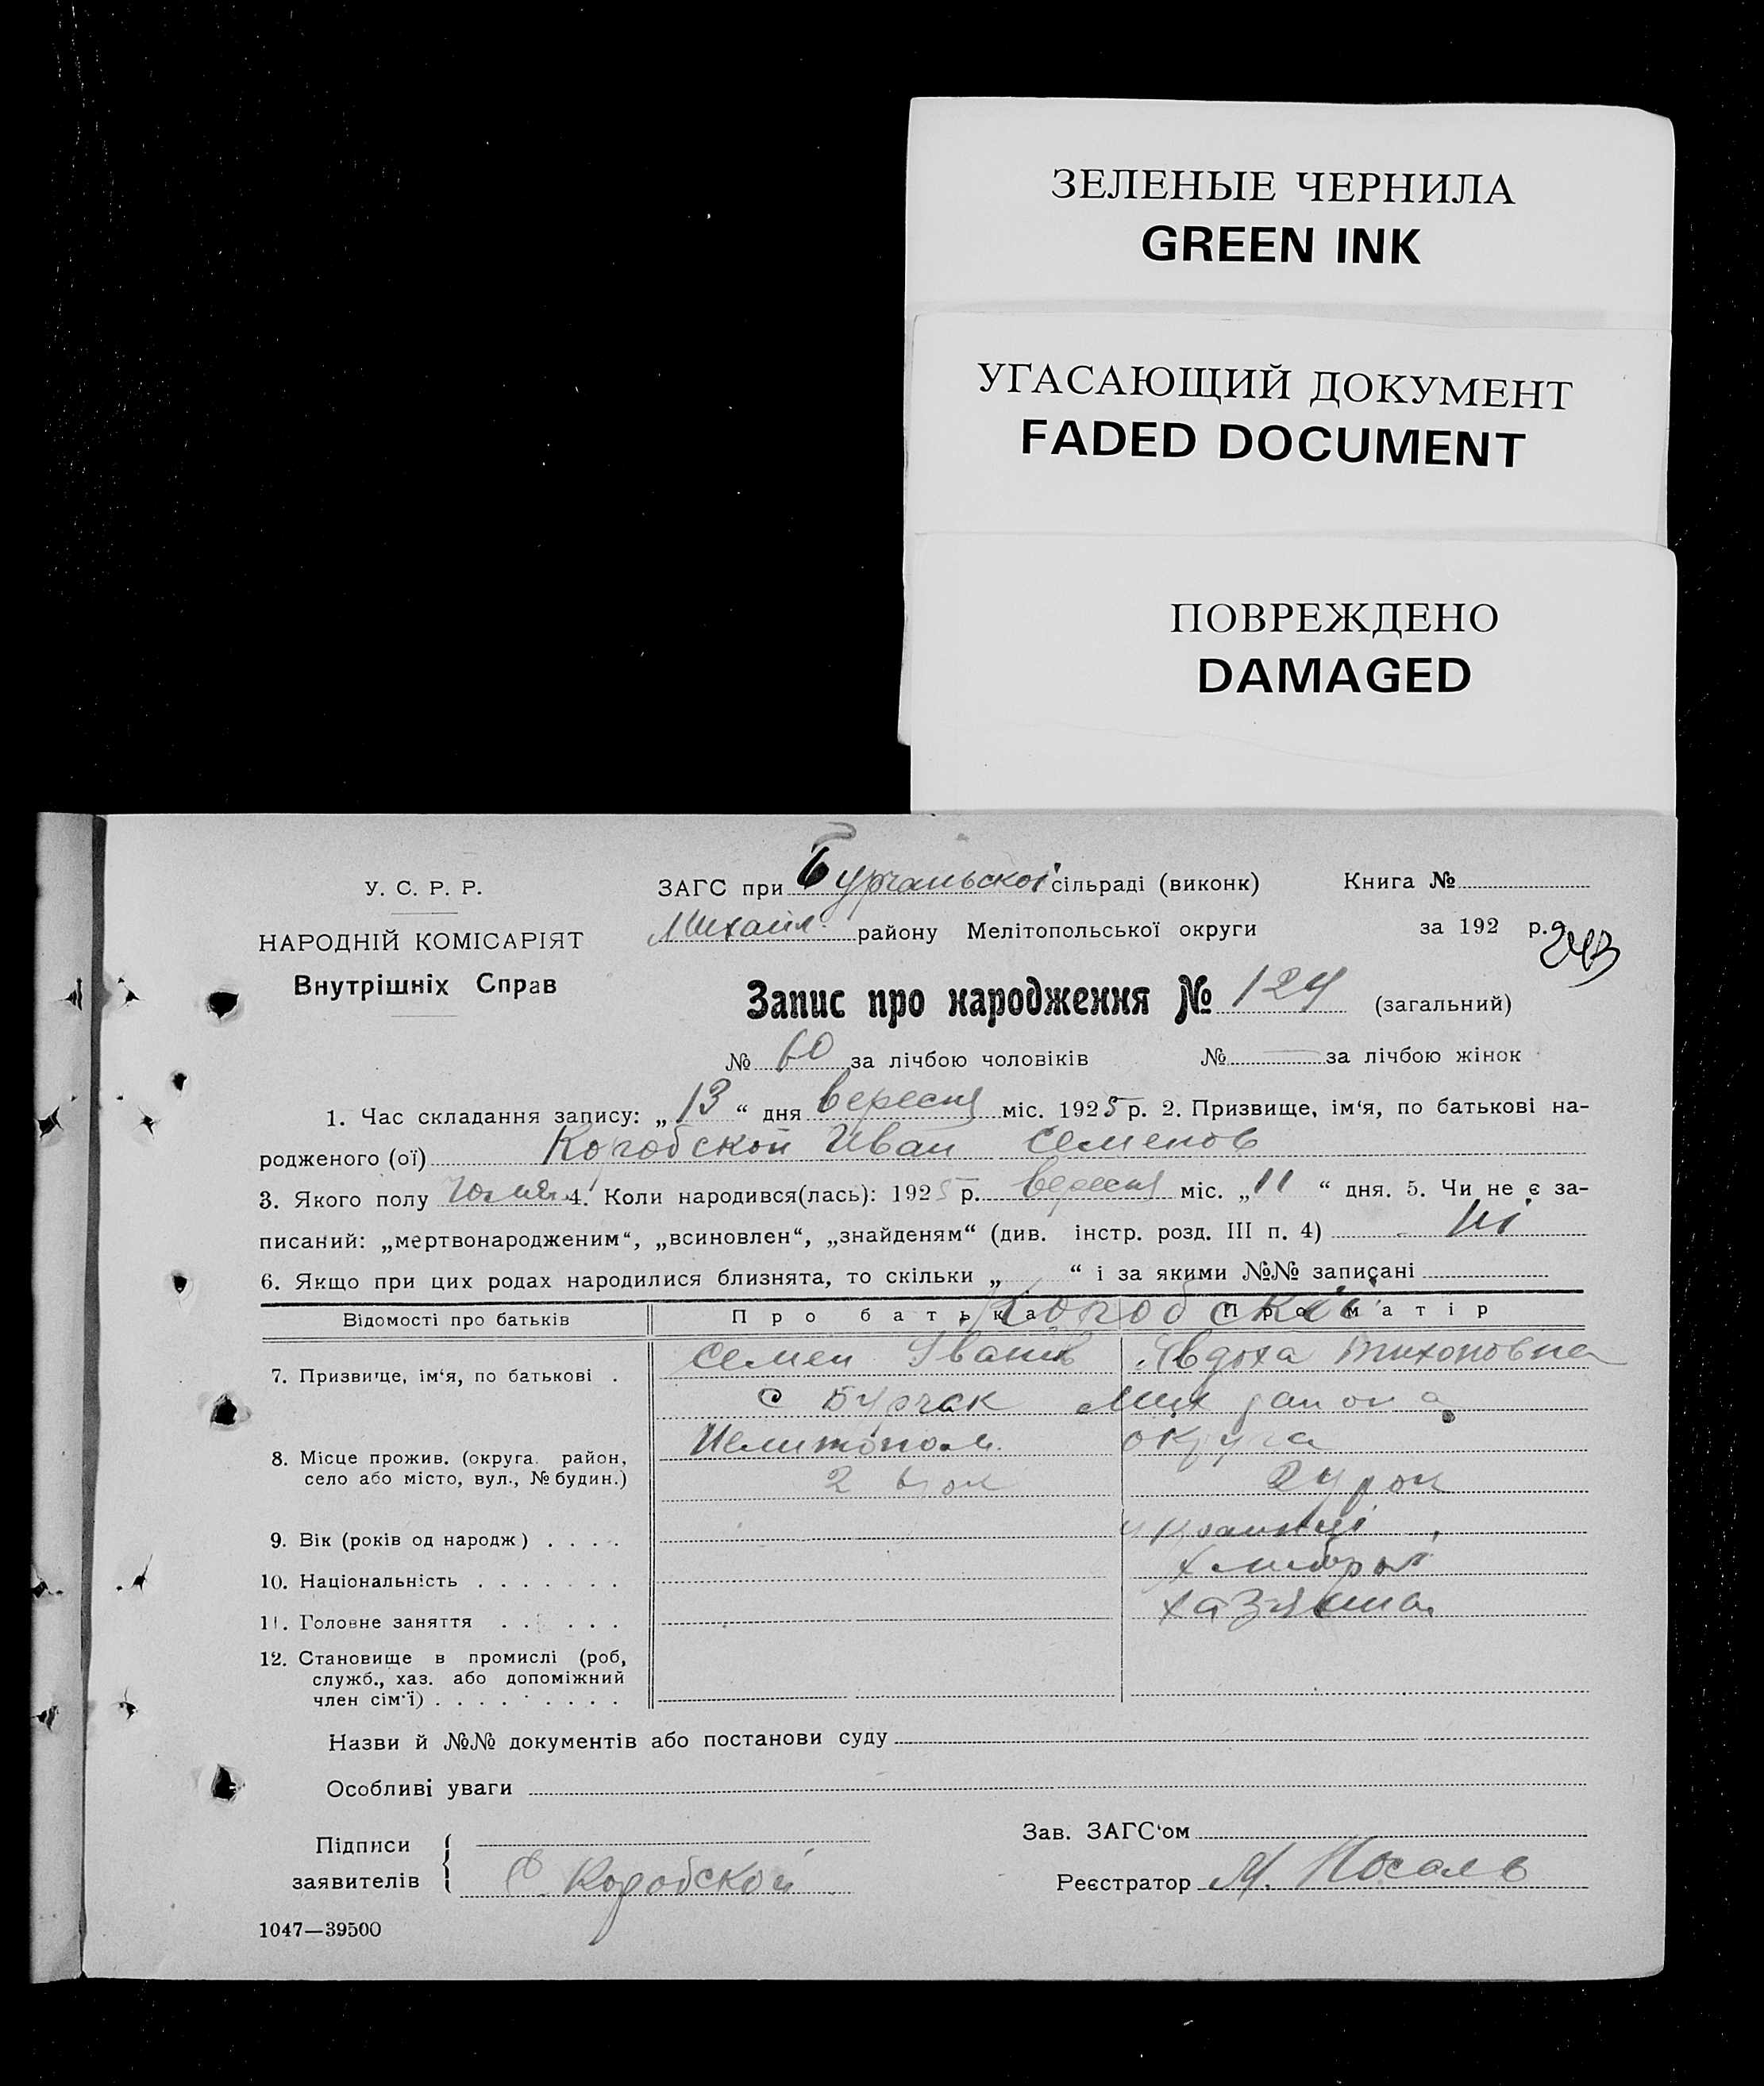 ЗЕЛЕНЫЕ ЧЕРНИЛА
GREEN INK
УГАСАЮЩИЙ ДОКУМЕНТ
FADED DOCUMENT
ПОВРЕЖДЕНО
DAMAGED
У. С. Р. Р.
НАРОДНІЙ КОМІСАРІЯТ
Внутрішніх Справ
ЗАГС при Бурчацьскої сільраді (виконк) Книга №
Михайл. району Мелітопольської округи за 192 р.
243
Запис про народження № 124 (загальний)
№ 60 за лічбою чоловіків № — за лічбою жінок
1. Час складання запису: „13“ дня вересня міс. 1925 р. 2. Призвище, ім‘я, по батькові на-
родженого (ої) Коробской Иван Семенов
3. Якого полу 4. Коли народився(лась): 1925 р. вересня міс. „11“ дня. 5. Чи не є за-
писаний: „мертвонародженим“, „всиновлен“, „знайденям“ (див. інстр. розд. III п. 4) ні
6. Якщо при цих родах народилися близнята, то скільки „ “ і за якими №№ записані
Відомості про батьків Про батька Про матір
Коробскіі
7. Призвище, ім‘я, по батькові . Семен Іванів Явдоха Тихоновна
с Бурчак Мих района
8. Місце прожив. (округа, район, село або місто, вул., № будин.) Мелитопол. округа
9. Вік (років од народж) . . . .
украинці
10. Національність . . . . . . .
11. Головне заняття . . . . . .
12. Становище в промислі (роб,
служб., хаз. або допоміжний
член сім‘ї) . . . . . . . . .
Назви й №№ документів або постанови суду
Особливі уваги
Підписи
заявителів С. Коробской
Зав. ЗАГС‘ом
Реєстратор М. Носаль
1047—39500